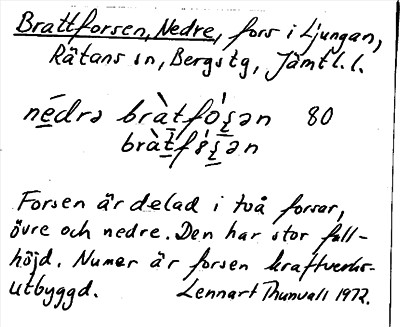 Brattforsen, Nedre, fors i Ljungan,
Rätans sn, Bergs tg, Jämtl. l.
nédrə bràtfo̍ʂən 80
bràtfo̍ʂən
Forsen är delad i två forsar,
övre och nedre. Den har stor fall-
höjd. Numer är forsen kraftverks-
utbyggd. Lennart Thunvall 1972.